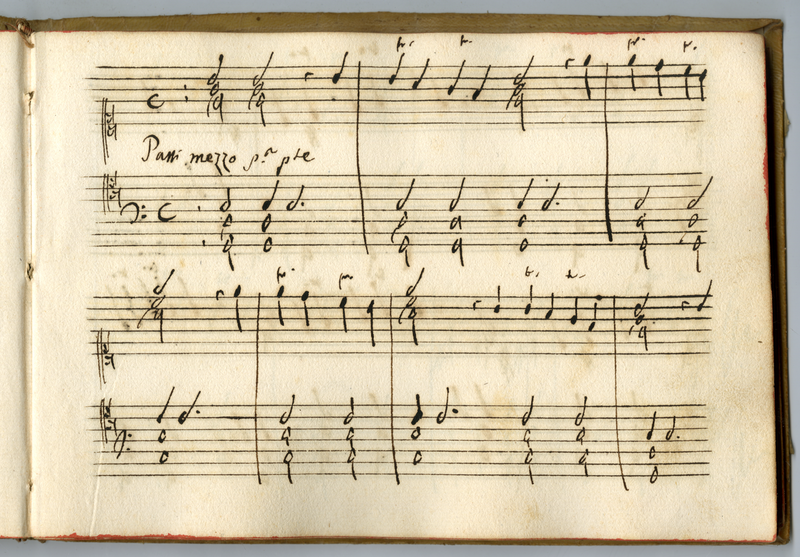 Passi mezzo p.ª pte